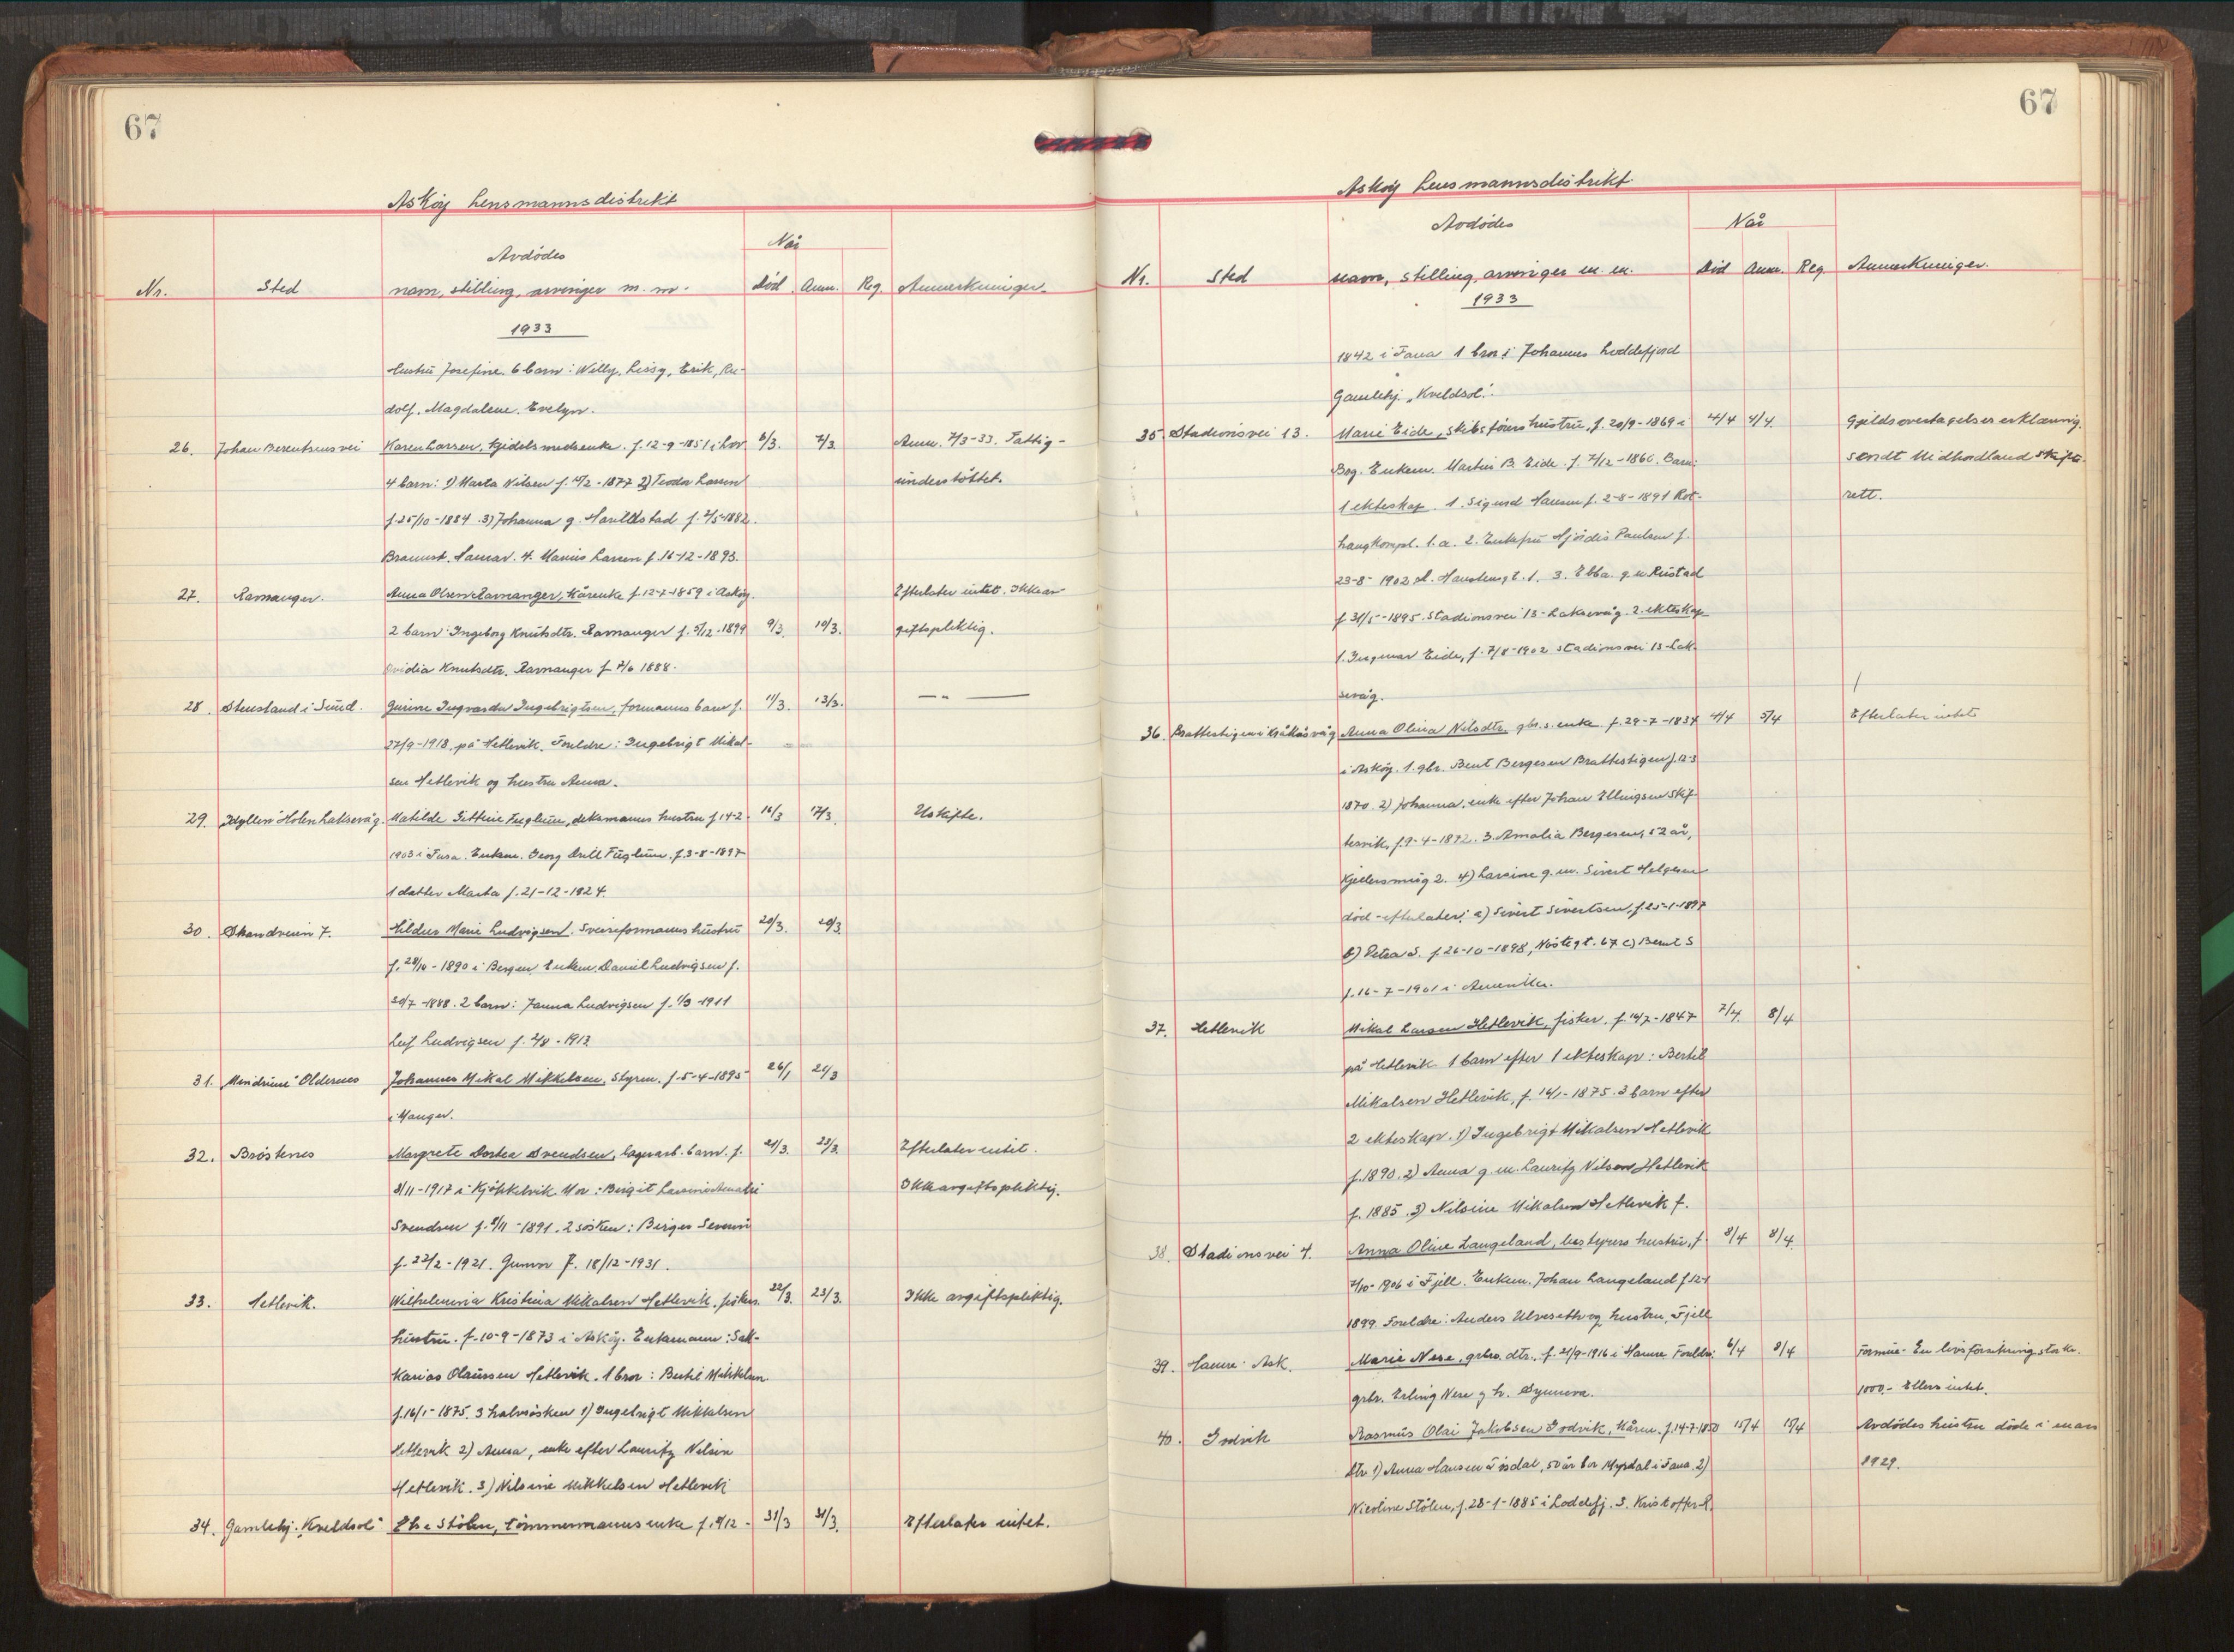 67
Askøy Lensmannsdistrikt
Avdødes
Når
Nr. Sted navn, stilling, arvinger m. m. Død Anm. Reg. Anmerkninger.
1933
hustru Josefine. 6 barn: Willy, Lissy, Erik, Ru-
dolf, Magdalene, Evelyn.
26. Johan Berentsens vei Karen Larsen, f. 12-9-1851 i 6/3. 7/3 Anm. 7/3-33. Fattig-
4 barn: 1) Marta Nilsen f. 1877 2) Teodor Larsen understøttet.
f. 25/10-1884. 3) Johanna g. f. 2/5-1882.
4. Marius Larsen f. 16-12-1893.
27. Ramanger. Anna Olsen Ramanger, kårenke f. 12-7-1859 i Askøy. Efterlater intet. Ikke av-
2 barn: Ingeborg Knutsdtr. Ramanger f. 5/12-1899 9/3. 10/3. giftspliktig.
Knutsdtr. Ramanger f. 7/6 1888.
28. i Sund. Gurine Ingvarda Ingebrigtsen, formanns barn f. 11/3. 13/3. — " —
27/9-1918, på Hetlevik. Foreldre: Ingebrigt Mikal-
sen Hetlevik og hustru Anna.
29. Idyllen Holen Laksevåg. Matilde Fuglum, dekksmanns hustru f. 14-2- 16/3 17/3. Uskifte.
1903 i Fusa. Enkem. Georg Fuglum. f. 3-8-1897
1 datter Marta f. 21-12-1924.
30. Strandveien 7. Hildur Marie Ludvigsen. Sveiseformanns hustru 20/3. 20/3.
f. 28/10-1890 i Bergen. Enkem. Daniel Ludvigsen f.
30/7-1888. 2 barn: Janna Ludvigsen f. 1/3-1911
Leif Ludvigsen f. 2/8-1913.
31. Oldernes Johannes Mikal Mikkelsen, Styrm. f. 5-4-1895 26/1 21/3
i Manger.
32. Brøstenes Margrete Dortea Svendsen, lagerarb. barn. f. 21/3. 23/3. Efterlater intet.
3/11-1917 i Kjøkkelvik. Mor: Birgit Ikke avgiftspliktig.
Svendsen f. 5/11-1891. 2 søsken: Birger Severin
f. 22/2-1921. Gunvor f. 18/12-1931.
33. Hetlevik. Wilhelmina Kristina Mikalsen Hetlevik, fiskers 22/3. 23/3. Ikke avgiftspliktig.
hustru. f. 10-9-1873 i Askøy. Enkemann: Sak-
karias Olaussen Hetlevik. 1 bror: Bertil Mikkelsen
f. 16/1-1875. 3 halvsøsken 1) Ingebrigt Mikkelsen
Hetlevik 2) Anna, enke efter Lauritz Nilsen
Hetlevik. 3) Nilsine Mikkelsen Hetlevik
34. Gamlehj. "Kveldsol" Støhn, tømmermanns enke f. 31/3 31/3. Efterlater intet.
67
Askøy Lensmannsdistrikt
Avdødes
Når
Nr. Sted navn, stilling, arvinger m. m. Død Anm. Reg. Anmerkninger.
1933
1842 i Fana 1 bror: Johannes Loddefjord
Gamlehj. "Kveldsol".
35. Stadionsvei 13. Marie Eide, skibsførers hustru, f. 20/9-1869 i 4/4 4/4 Gjeldsovertagelseserklæring.
Enkem. Martin B. Eide. f. 7/12-1860. Barn: sendt Midhordland Skifte-
1 ekteskap. 1. Sigurd Hansen f. 2-8-1891 rett.
2. Enkefru Hjørdis Paulsen f.
23-8-1902 1. 3. Ebba g. m. Rustad
f. 31/5-1895. Stadionsvei 13-Laksevåg. 2. ekteskap
1. Ingmar Eide, f. 7/8-1902 Stadionsvei 13-Lak-
sevåg.
36. Brattestigen i Kråkåsvåg Anna Olina Nilsdtr. gbr.s enke f. 29-7-1834 4/4 5/4 Efterlater intet
i Askøy. 1. gbr. Bent Bergesen Brattestigen f. 12-3
1870. 2) Johanna, enke efter Johan Ellingsen Skif-
tesvik, f. 9-4-1872. 3. Amalia Bergesen, 52 år,
2. 4) Larsine g. m. Sivert Helgesen
død - efterlater: a) Sivert Sivertsen, f. 25-1-1897
b) Petra S. f. 26-10-1898, Nøstegt. 67 c) Bernt S
f. 16-7-1901 i Amerika.
37. Hetlevik Mikal Larsen Hetlevik, fisker. f. 14/7-1847 7/4. 8/4
på Hetlevik 1 barn efter 1 ekteskap: Bertil
Mikalsen Hetlevik, f. 16/1-1875. 3 barn efter
2 ekteskap. 1) Ingebrigt Mikalsen Hetlevik
f. 1890. 2) Anna g. m. Lauritz Nilsen Hetlevik
f. 1885. 3) Nilsine Mikalsen Hetlevik f.
38. Stadionsvei 4. Anna Oline Langeland, bestyrers hustru, f. 8/4 8/4.
7/10-1906 i Fjell. Enkem. Johan Langeland f. 12-1
1899. Foreldre: Anders Ulveseth og hustru, Fjell
39. Hamre Ask. Marie Nese, grbr. dtr., f. 21/9-1916 i Hamre Foreldre: 6/4 8/4 Formue- En livsforsikring, stor kr.
grbr. Erling Nese g h. Synneva. 1000,- Ellers intet.
40. Godvik Rasmus Olai Jakobsen Godvik, kårm. f. 14-7-1850 15/4 15/4 Avdødes hustru døde i mars
1) Anna Hansen 50 år bor i Fana. 2) 1929.
Nicoline Stølen, f. 28-1-1885 i Loddefj. 3. Kristoffer R.